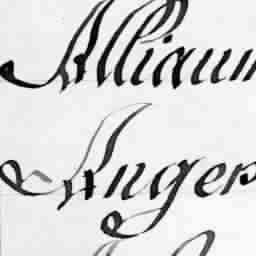 Alliaum
Angers